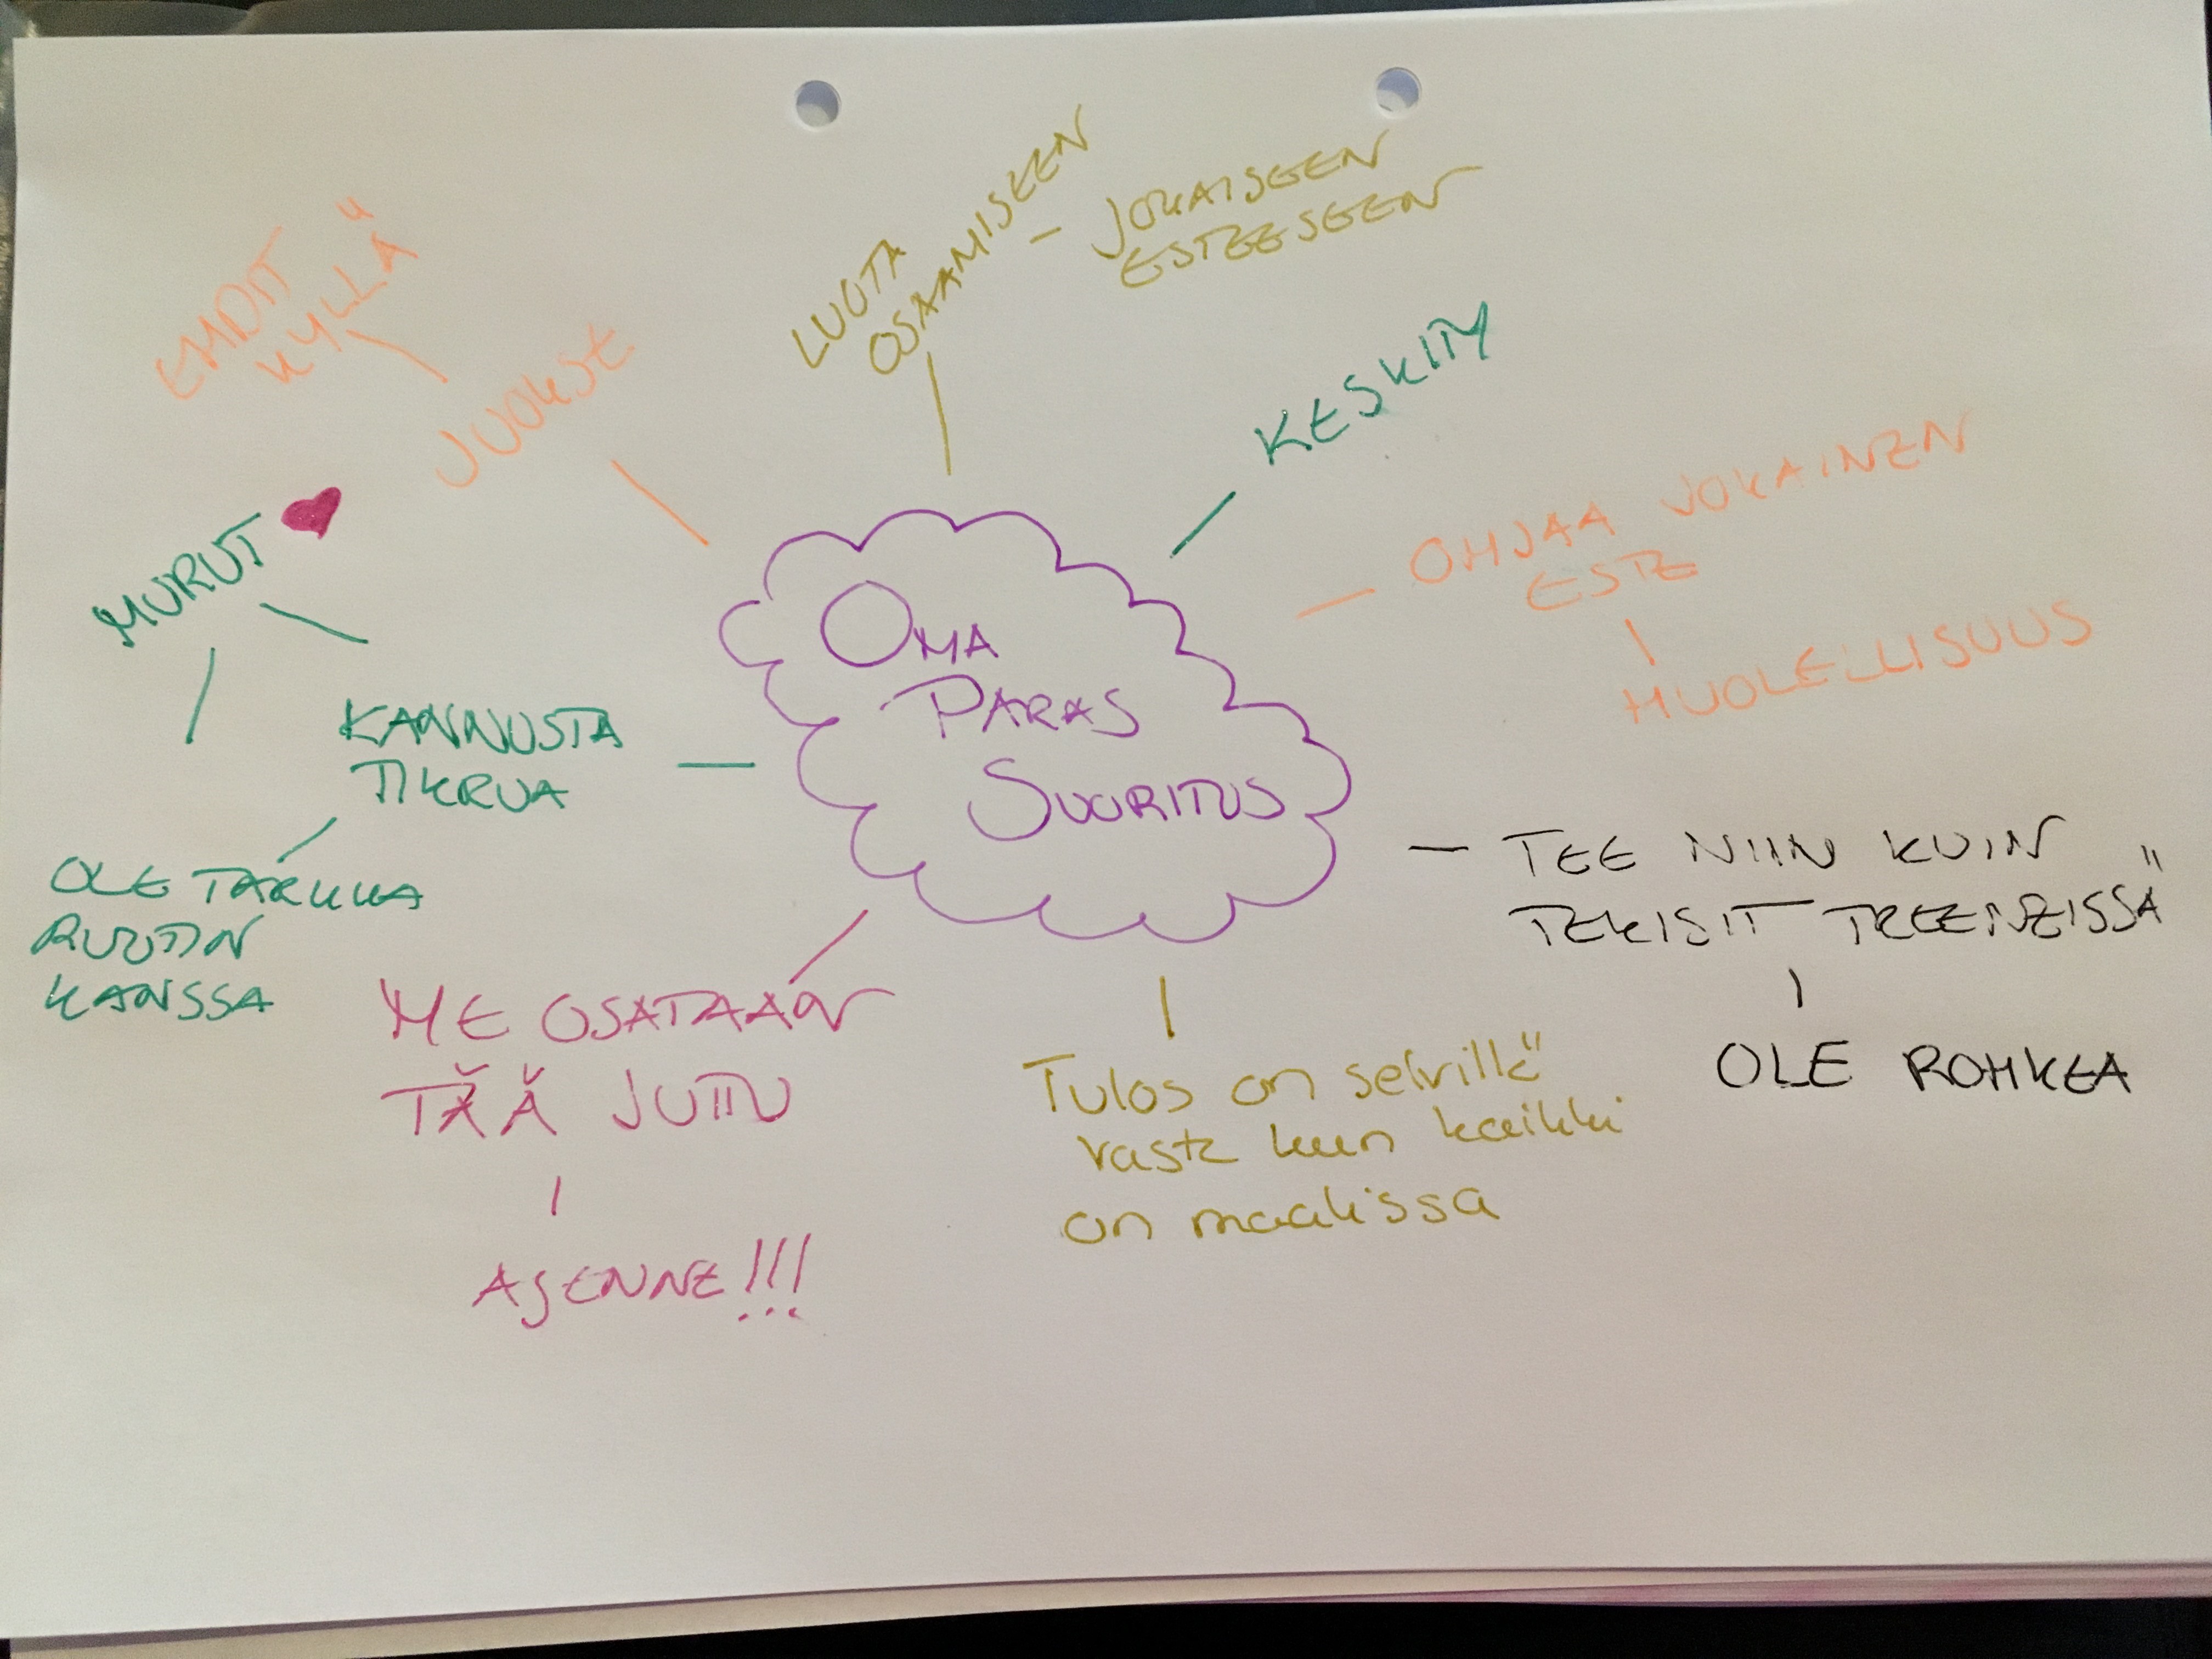 LUOTA
OSAAMISEEN
- JOKAISEEN
ESTEESEEN
EHDIT
KYLLÄ
JUOKSE
KESKITY
OHJAA JOKAINEN
ESTE
HUOLELLISUUS
MURUT
KANNUSTA
TIKRUA
OLE TARKKA
RUUDIN
KANSSA
OMA
PARAS
SUORITUS
- TEE NIIN KUIN
TEKISIT TREENEISSÄ
OLE ROHKEA
ME OSATAAN
TÄÄ JUTTU
ASENNE!!!
Tulos on selvillä
vasta kun kaikki
on maalissa